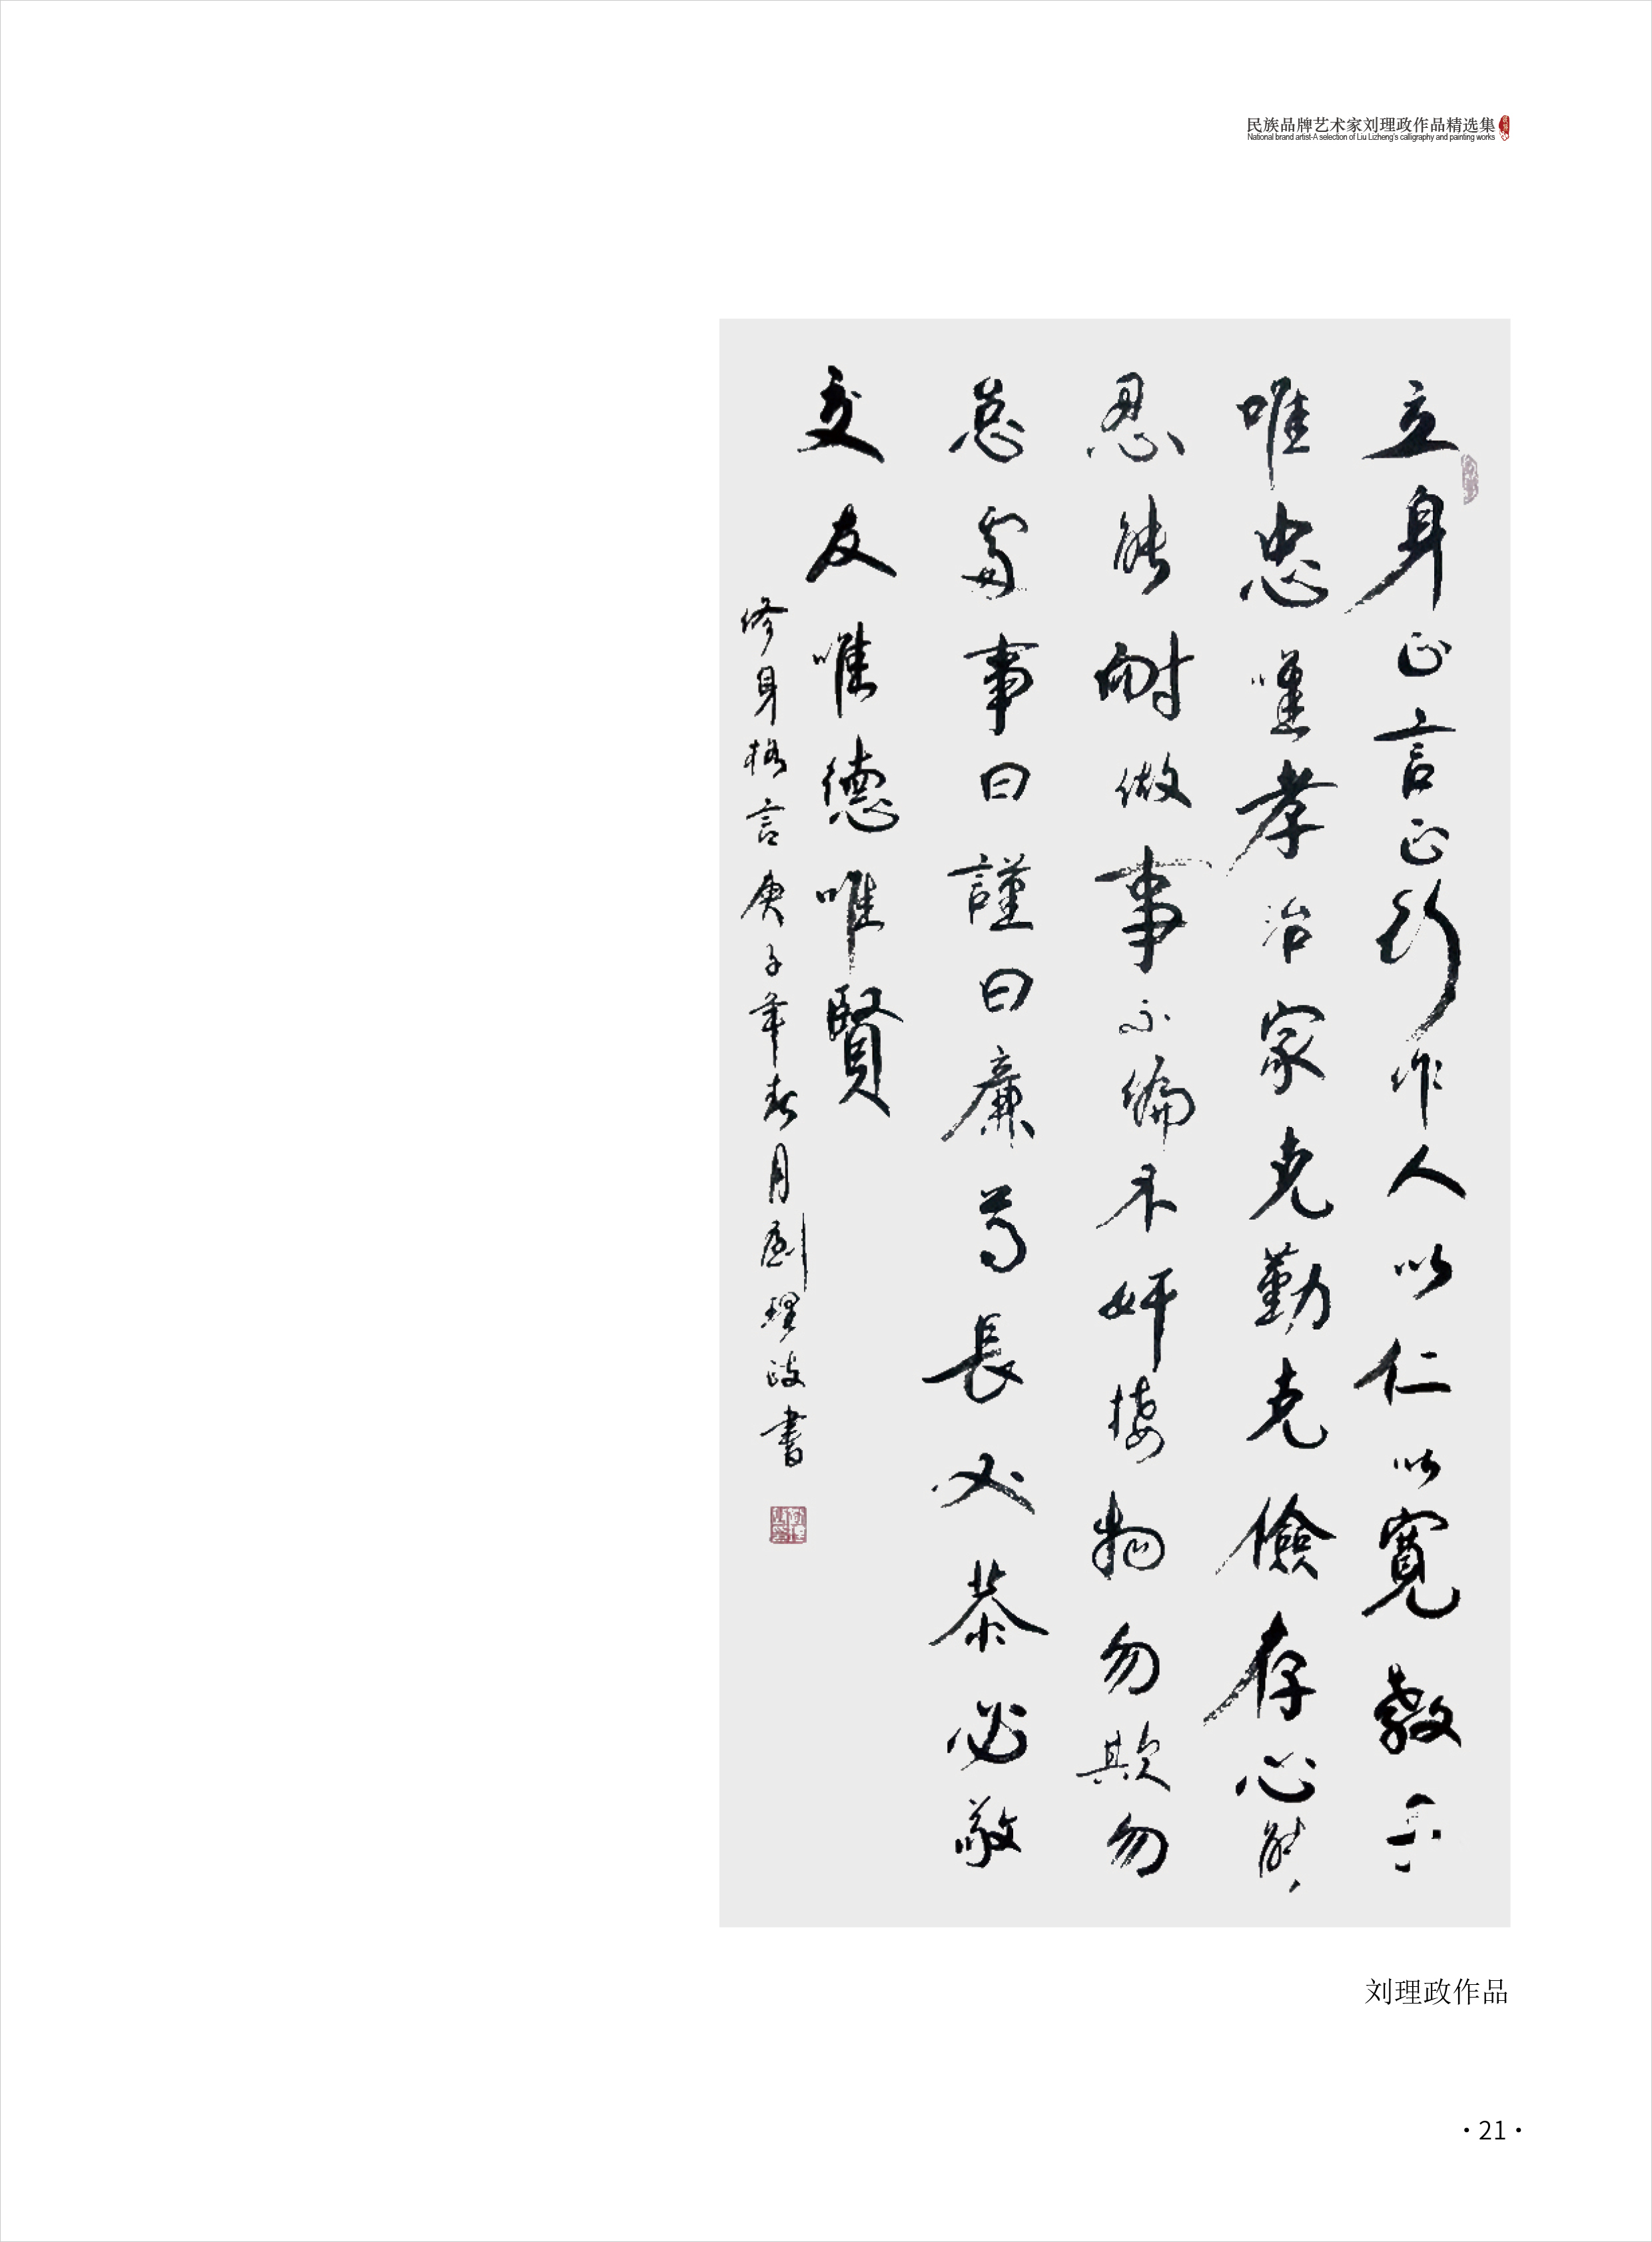 民族品牌艺术家刘理政作品精选集
National brand artist-A selection of Liu Lizheng's calligraphy and painting works
立身正言正行作人以仁以寬教子
唯忠唯孝治家克勤克儉存心能
忍能耐做事不偏不奸接物勿欺勿
怠處事曰謹曰廉尊長必恭必敬
交友唯德唯賢
修身格言庚子年春月劉理政書
刘理政作品
·21·